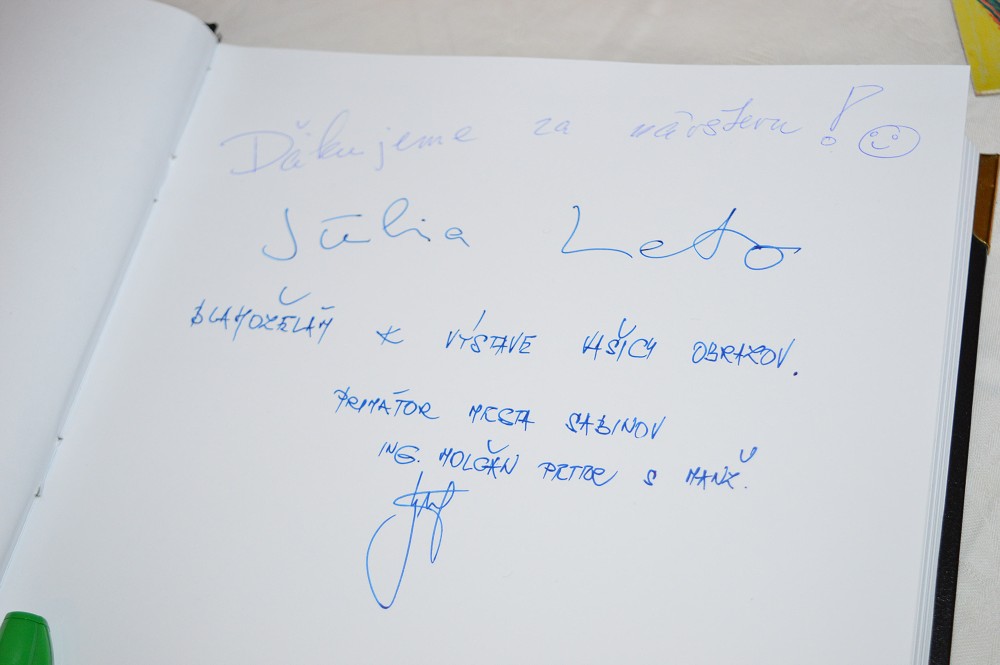 Ďakujeme za návštevu!
Júlia Leto
BLAHOŽELÁM K VÝSTAVE VAŠICH OBRAZOV.
PRIMÁTOR MESTA SABINOV
ING. MOLČAN PETER S MANŽ.